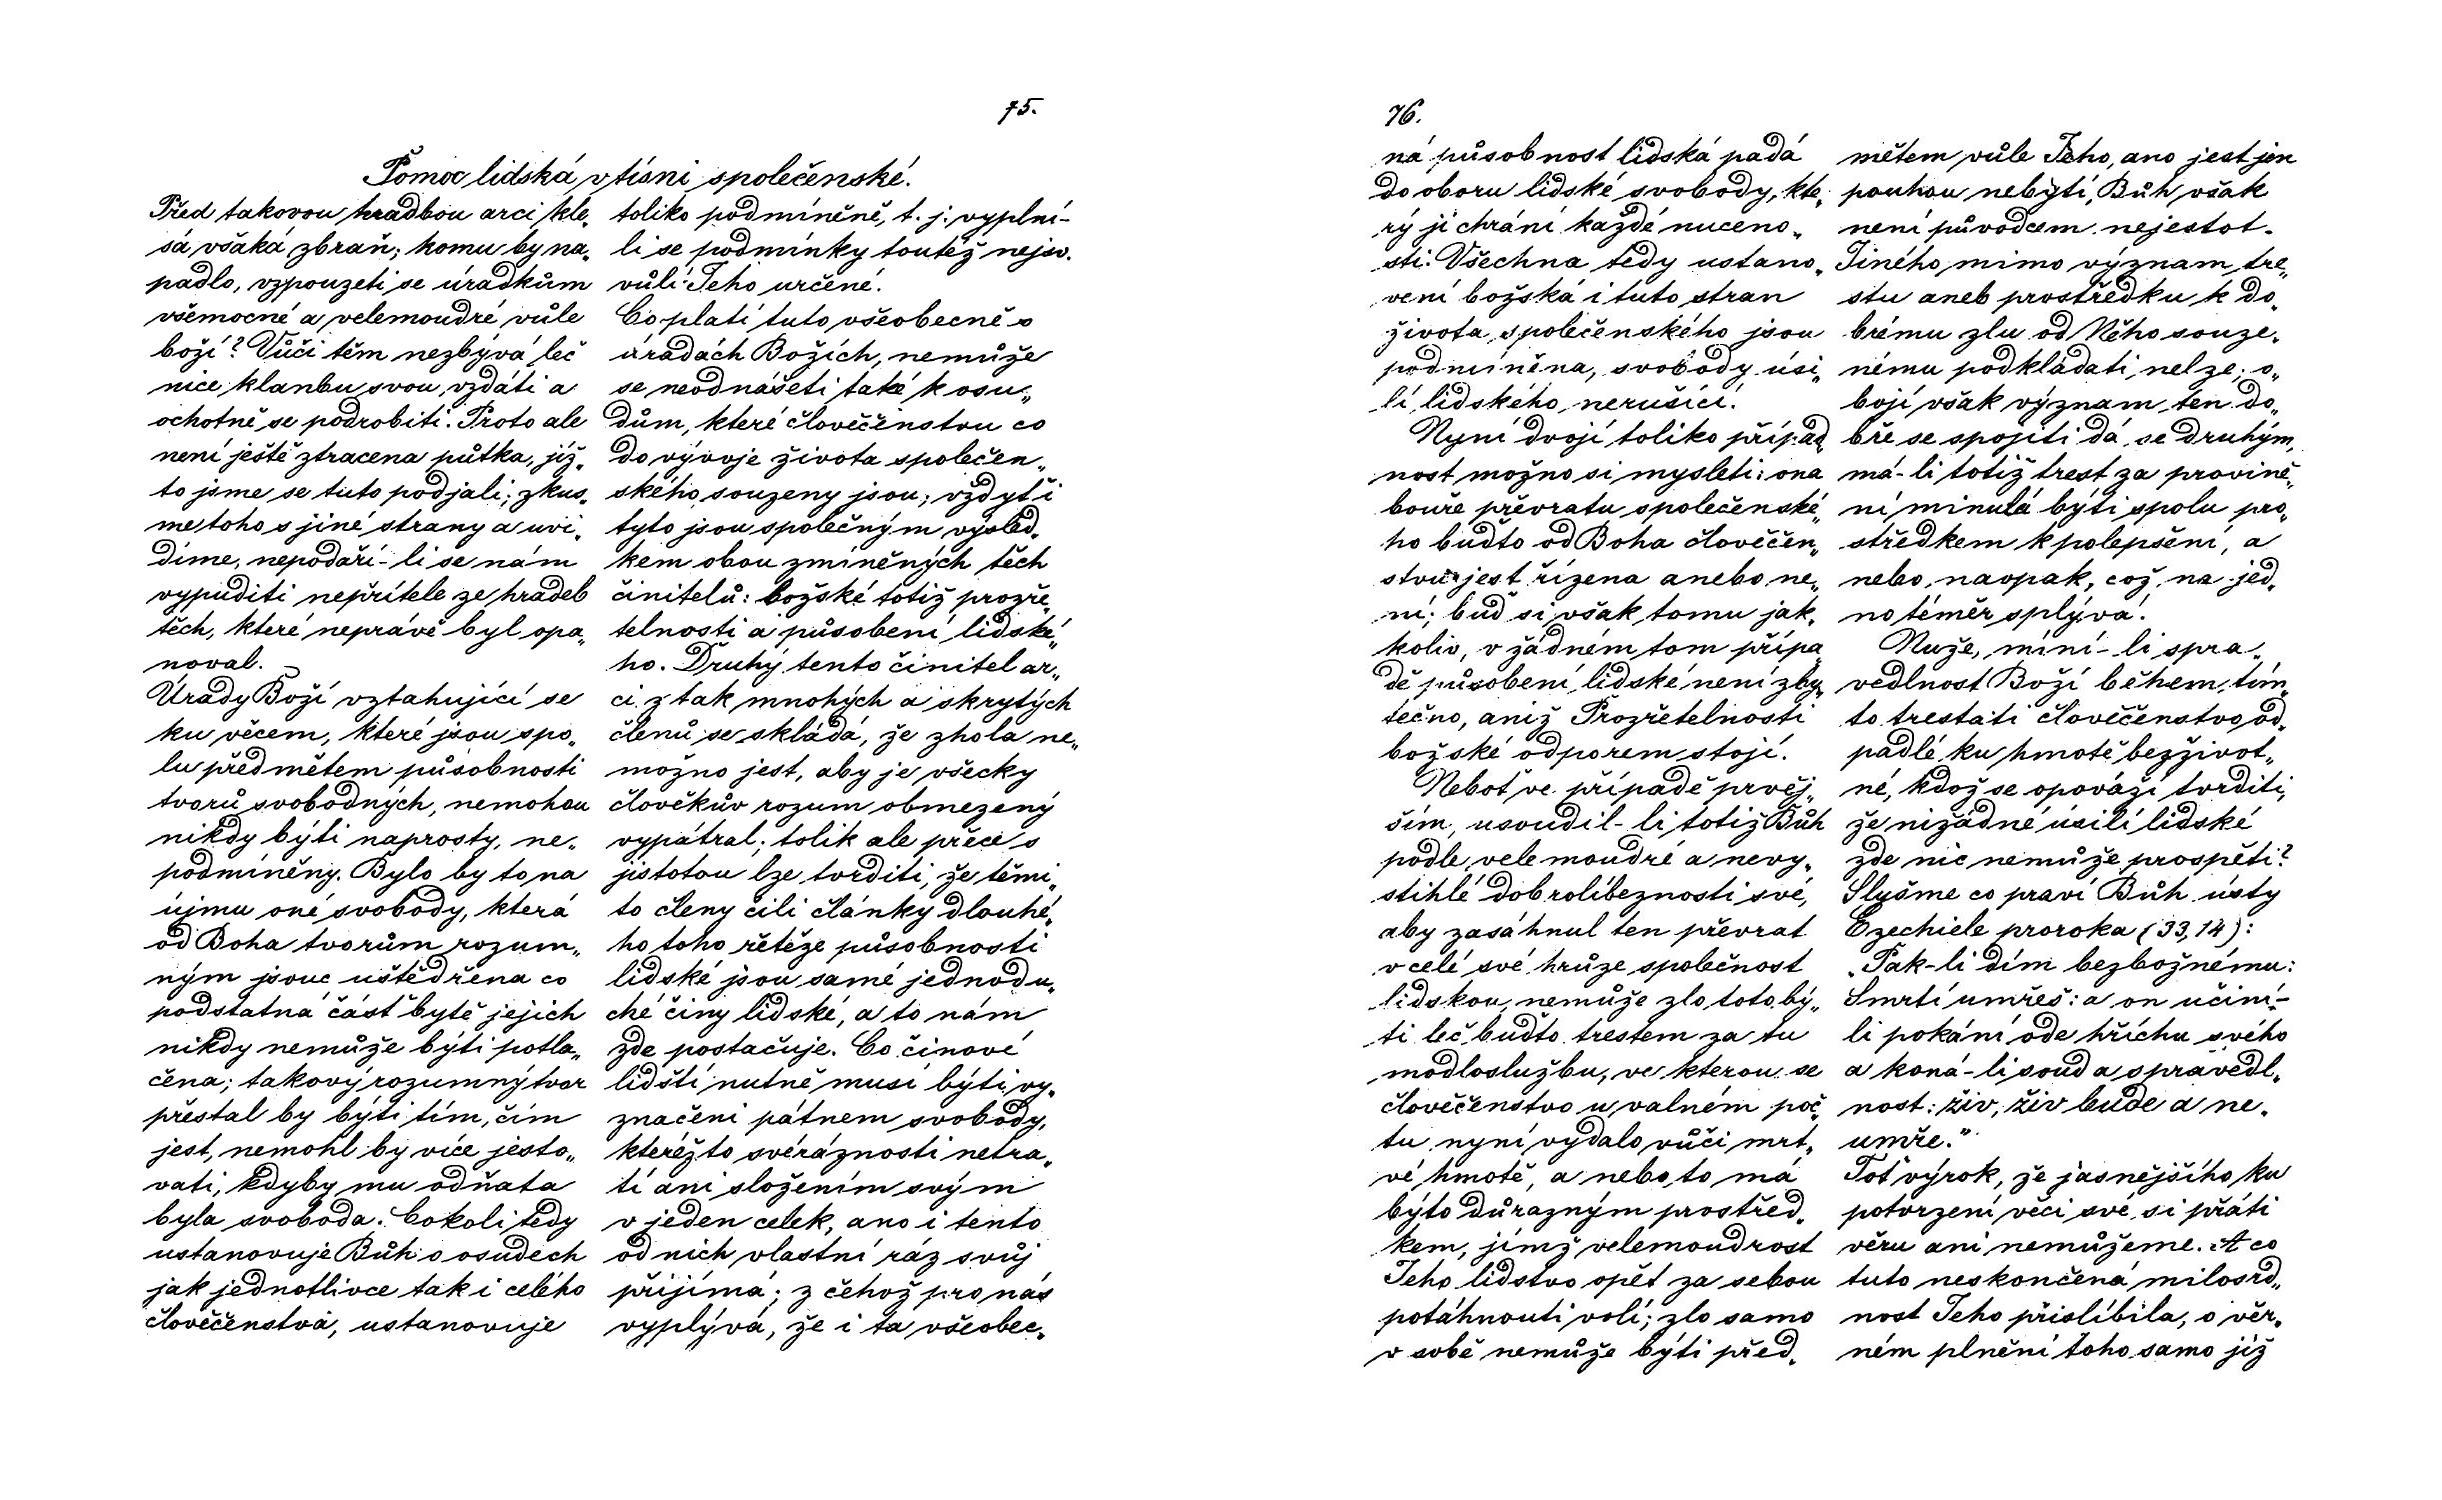 75.
Pomoc lidská v tísni společenské.
Před takovou hradbou arci kle„
sá všaká zbraň; komu by na„
padlo, vzpouzeti se úradkům
všemocné a velemoudré vůle
boží? Vůči těm nezbývá leč
nice klanbu svou vzdáti a
ochotně se podrobiti. Proto ale
není ještě ztracena půtka, již„
to jsme se tuto podjali; zkus„
me toho s jiné strany a uvi„
díme, nepodaří-li se nám
vypuditi nepřítele ze hradeb
těch, které neprávě byl opa„
noval.
Úrady Boží vztahující se
ku věcem, které jsou spo„
lu předmětem působnosti
tvorů svobodných, nemohou
nikdy býti naprosty, ne„
podmíněny. Bylo by to na
újmu oné svobody, která
od Boha tvorům rozum„
ným jsouc uštědřena co
podstatná část bytě jejich
nikdy nemůže býti potla„
čena; takový rozumný tvor
přestal by býti tím, čím
jest, nemohl by více jesto„
vati, kdyby mu odňata
byla svoboda. Cokoli tedy
ustanovuje Bůh o osudech
jak jednotlivce tak i celého
člověčenstva, ustanovuje
toliko podmíněně, t. j. vyplní-
li se podmínky toutéž nejsv.
vůlí Jeho určené.
Co platí tuto všeobecně o
úradách Božích, nemůže
se neodnášeti také k osu„
dům, které člověčenstvu co
do vývoje života společen„
ského souzeny jsou; vždyť i
tyto jsou společným výsled„
kem obou zmíněných těch
činitelů: božské totiž prozře„
telnosti a působení lidské„
ho. Druhý tento činitel ar„
ci z tak mnohých a skrytých
členů se skládá, že zhola ne„
možno jest, aby je všecky
člověkův rozum obmezený
vypátral; tolik ale přece s
jistotou lze tvrditi, že těmi„
to členy čili články dlouhé„
ho toho řetěze působnosti
lidské jsou samé jednodu„
ché činy lidské, a to nám
zde postačuje. Co činové
lidští nutně musí býti vy„
značeni pátnem svobody,
kteréžto svéráznosti netra„
tí ani složením svým
v jeden celek, ano i tento
od nich vlastní ráz svůj
přijímá; z čehož pro nás
vyplývá, že i ta všeobec„
76.
ná působnost lidská padá
do oboru lidské svobody, kte„
rý ji chrání každé nuceno„
sti. Všechna tedy ustano„
vení božská i tuto stran
života společenského jsou
podmíněna, svobody úsi„
lí lidského nerušící.
Nyní dvojí toliko případ„
nost možno si mysleti: ona
bouře převratu společenské„
ho buďto od Boha člověčen„
stvu jest řízena anebo ne„
ní; buď si však tomu jak„
koliv, v žádném tom přípa„
dě působení lidské není zby„
tečno, aniž Prozřetelnosti
božské odporem stojí.
Neboť ve případě prvěj„
ším, usoudil-li totiž Bůh
podle velemoudré a nevy„
stihlé dobrolíbeznosti své,
aby zasáhnul ten převrat
v celé své hrůze společnost
lidskou, nemůže zlo toto bý„
ti leč buďto trestem za tu
modloslužbu, ve kterou se
člověčenstvo u valném poč„
tu nyní vydalo vůči mrt„
vé hmotě, a nebo to má
býto důrazným prostřed„
kem, jímž velemoudrost
Jeho lidstvo opět za sebou
potáhnouti volí; zlo samo
v sobě nemůže býti před„
mětem vůle Jeho, ano jest jen
pouhou nebytí, Bůh však
není původcem nejestot.
Jiného mimo význam tre„
stu aneb prostředku k do„
brému zlu od Něho souze„
nému podkládati nelze; o„
bojí však význam ten do„
bře se spojiti dá se druhým,
má-li totiž trest za provině„
ní minulá býti spolu pro„
středkem k polepšení, a
nebo naopak, což na jed„
no téměř splývá.
Nuže, míní-li spra„
vedlnost Boží během tím„
to trestati člověčenstvo od„
padlé ku hmotě bezživot„
né, kdož se opováží tvrditi,
že nižádné úsilí lidské
zde nic nemůže prospěti?
Slyšme co praví Bůh ústy
Ezechiele proroka (33,14):
„Pak-li dím bezbožnému:
Smrtí umřeš: a on učiní-
li pokání ode hříchu svého
a koná-li soud a spravedl„
nost: živ, živ bude a ne„
umře."
Toť výrok, že jasnějšího ku
potvrzení věci své si přáti
věru ani nemůžeme. A co
tuto neskončená milosrd„
nost Jeho přislíbila, o věr„
ném plnění toho samo již